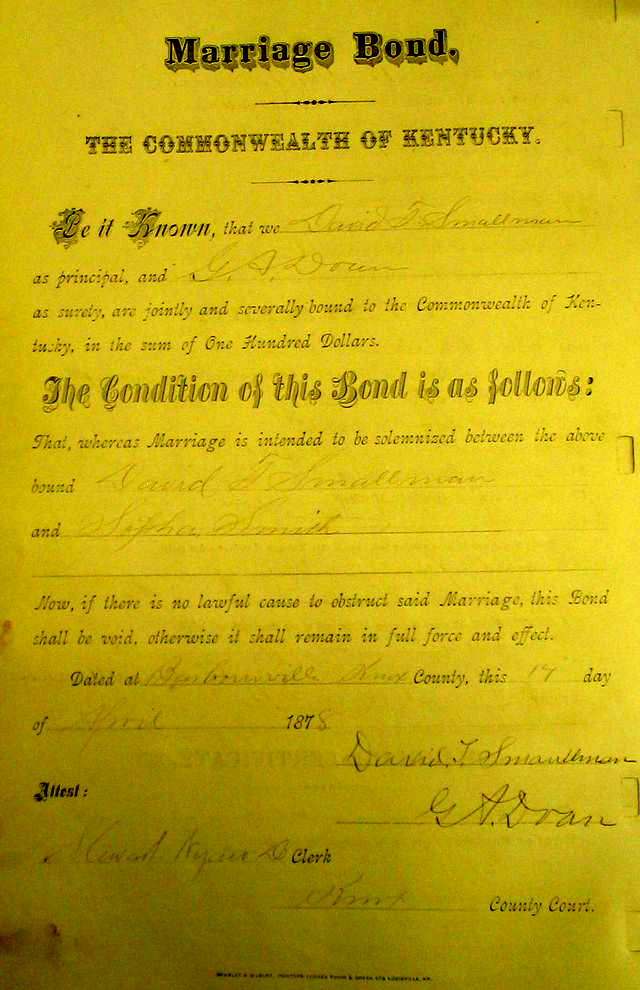 Marriage Bond.
THE COMMONWEALTH OF KENTUCKY.
Be it Known, that we David T. Smallman
as principal, and G. A. Doan
as surety, are jointly and severally bound to the Commonwealth of Ken-
tucky, in the sum of One Hundred Dollars.
The Condition of this Bond is as follows:
That, whereas Marriage is intended to be solemnized between the above
bound David T Smallman
and Smith
Now, if there is no lawful cause to obstruct said Marriage, this Bond
shall be void, otherwise it shall remain in full force and effect.
Dated at Barbourville Knox County, this day
of April 1878
David. T. Smallman
Attest:
G A. Doan
Clerk
Knox County Court.